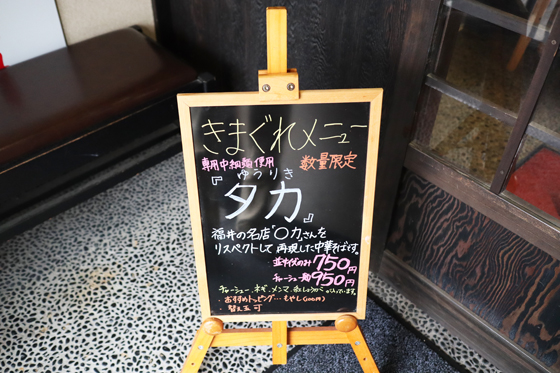 きまぐれメニュー
専用中細麺使用 数量限定
ゆうりき
『夕力』
福井の名店"〇力"さんを
リスペクトして再現した中華そばです。
並サイズのみ 750円
チャーシュー麺 950円
チャーシュー、ネギ、メンマ、がのっています。
・おすすめトッピング…もやし(100円)
・替え玉 可